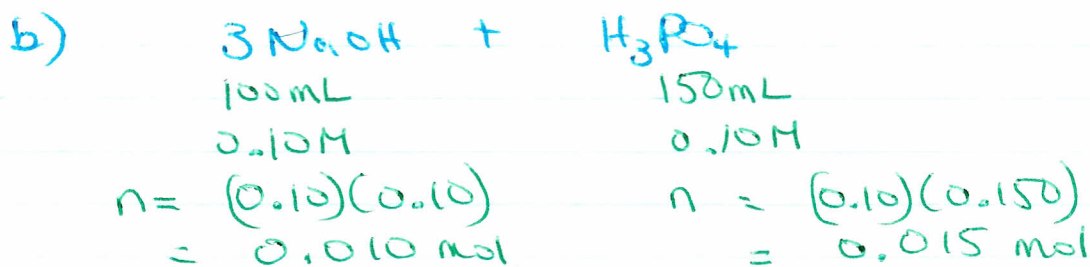 b) 3NaOH + H₃PO₄
100mL 150mL
0.10M 0.10M
n= (0.10)(0.10) n = (0.10)(0.150)
= 0.010 mol = 0.015 mol